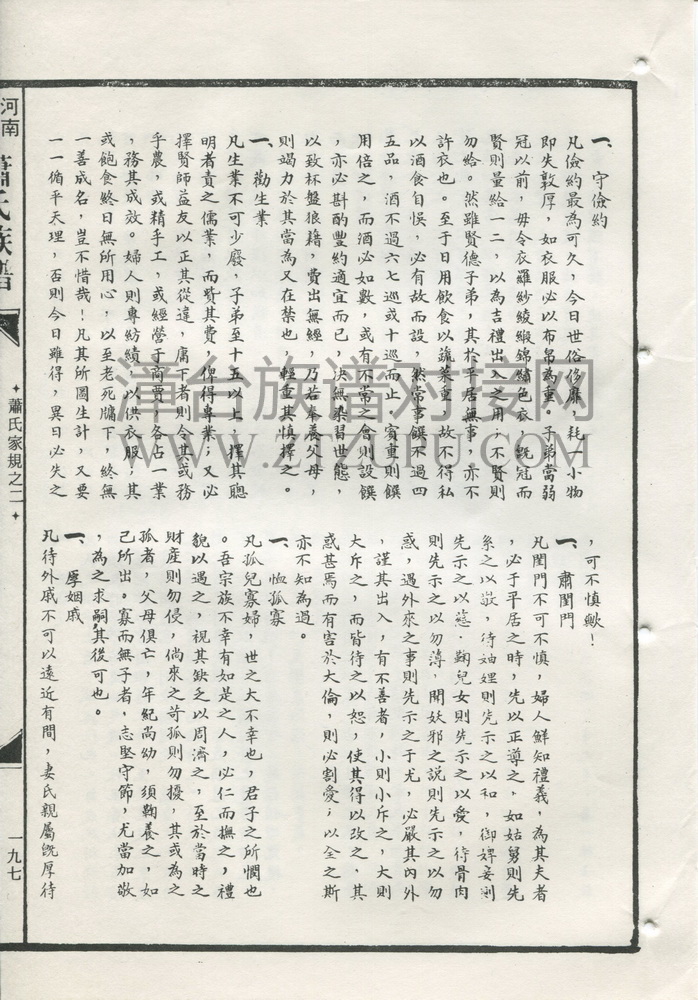 一、守儉約
凡儉約最為可久，今日世俗侈靡，耗一小物
即失敦厚，如衣服必以布帛為重。子弟當弱
冠以前，毋令衣羅紗綾緞錦繡色衣，既冠而
賢則量給一二，以為吉禮出入之用；不賢則
勿給。然雖賢德子弟，其於平居無事，亦不
許衣也。至于日用飲食以蔬菜重，故不得私
以酒食自娛，必有故而設，然常事饌不過四
五品，酒不過六七巡或十巡而止，賓重則饌
用倍之，而酒必如數，或有不常之會則設饌
，亦必斟酌豐約適宜而已，決無染習世態，
以致杯盤狼藉，費出無經，乃若奉養父母，
則竭力於其當為又在禁也，輕重其慎擇之。
一、勸生業
凡生業不可少廢，子弟至十五以上，擇其聰
明者責之儒業，而貲其費，俾得專業；又必
擇賢師益友以正其從違，庸下者則令其或務
乎農，或精手工，或經營于商賈，各占一業
，務其成效。婦人則專紡績，以供衣服，其
或飽食終日無所用心，以至老死牖下，終無
一善成名，豈不惜哉！凡其所圖生計，又要
一一循乎天理，否則今日雖得，異日必失之
，可不慎歟！
一、肅閨門
凡閨門不可不慎，婦人鮮知禮義，為其夫者
，必于平居之時，先以正導之，如姑舅則先
系之以敬，待妯娌則先示之以和，御婢妾則
先示之以慈，鞠兒女則先示之以愛，待骨肉
則先示之以勿薄，開妖邪之說則先示之以勿
惑，遇外來之事則先示之于尤，必嚴其內外
，謹其出入，有不善者，小則小斥之，大則
大斥之，而皆待之以恕，使其得以改之，其
或甚焉而有害於大倫，則必割愛；以全之斯
亦不知為過。
一、恤孤寡
凡孤兒寡婦，世之大不幸也，君子之所憫也
。吾宗族不幸有如是之人，必仁而撫之，禮
貌以遇之，視其缺乏以周濟之，至於當時之
財產則勿侵，倘來之苛孤則勿擾，其或為之
孤者，父母俱亡，年紀尚幼，須鞠養之，如
己所出。寡而無子者，志堅守節，尤當加敬
，為之求嗣其後可也。
一、厚姻戚
凡待外戚不可以遠近有間，妻氏親屬既厚待
河南 蕭氏族譜
蕭氏家規之二
一九七
清台族谱对接网
WWW.ZTZUPU.COM